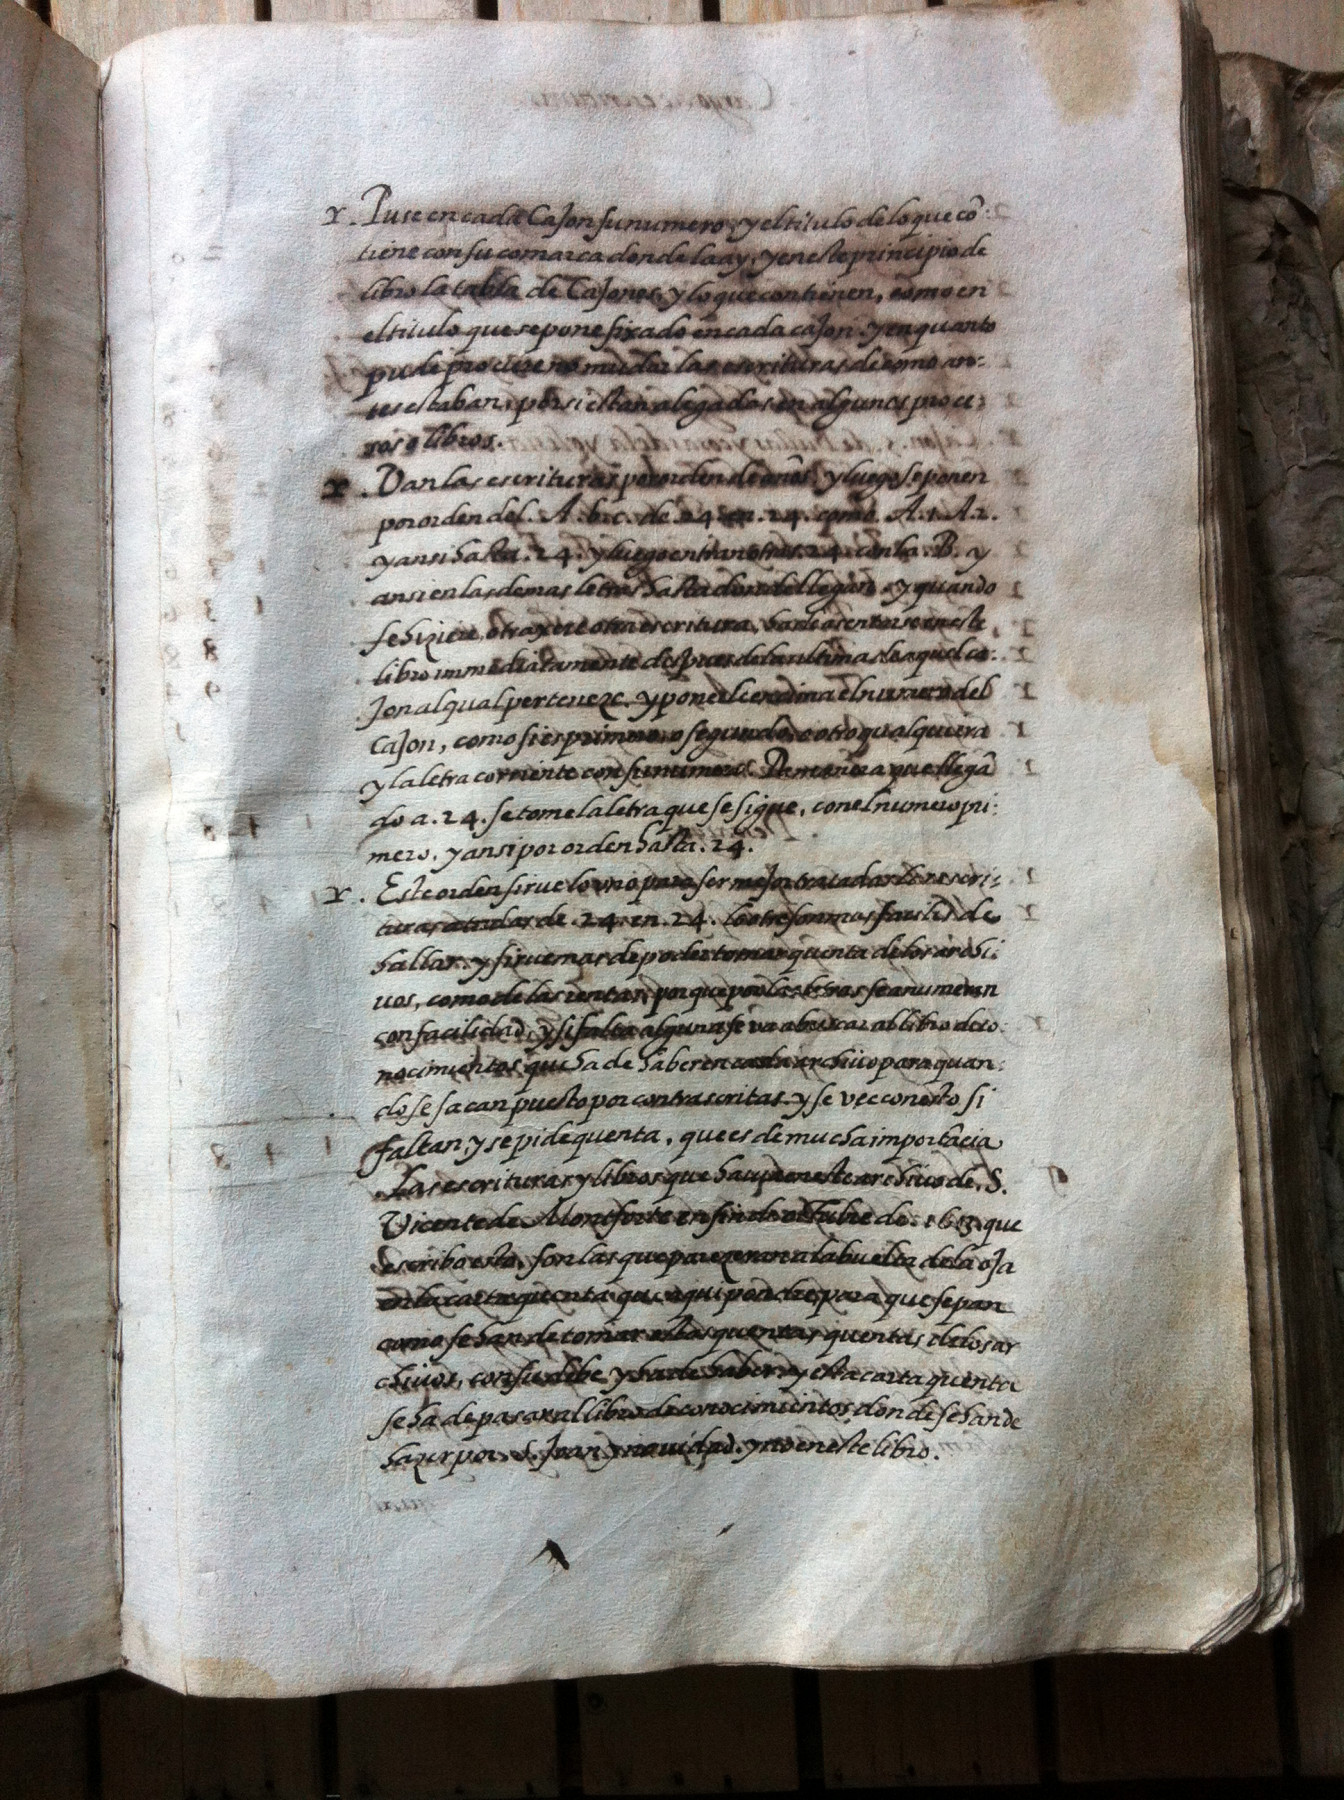 r. Puse en cada Cajon su numero, y el titulo de lo que cō:
tiene con su comarca donde la ay, y en este principio de
libro la tabla de Cajones, y lo que contienen, como en
el titulo que se pone fixado en cada cajon. y en quanto
pude procure no mudar las escrituras de como an:
tes estaban, por si estan alegadas en algunos proce:
sos o libros.
r. Van las escrituras por orden de años, y luego se ponen
por orden del. A. b. c. de. 24. en. 24. como. A. 1. A. 2.
y ansi hasta. 24. y luego entran otras. 24. con la. B. y
ansi en las demas letras hasta donde llegan. y quando
se hiziere, otra escritura, ha de asentarse en este
libro immediatamente despues de la ultima de aquel ca:
jon al qual perteneze. y ponerle encima el numero del
Cajon, como si es primero o segundo, o otro qualquiera
y la letra corriente con su numero. De manera que llegā
do a. 24. se tome la letra que se sigue, con el numero pri:
mero, y ansi por orden hasta. 24.
r. Este orden sirue lo uno para ser mejor tratadas las escri:
turas atadas de. 24. en. 24. lo otro son mas faciles de
hallar. y sirue mas de poder tomar quenta de los archi:
uos, como de las rentas, porque por las letras se anumeran
con facilidad, y si falta alguna se va a buscar al libro de co:
nocimientos que ha de haber en cada archiuo para quan:
do se sacan puesto por contra escritas. y se vee con esto si
faltan, y se pide quenta, que es de mucha importācia
Las escrituras y libros que hay en este archiuo de. S.
Vicente de Monforte en fin de otubre de. 1613. que
escribo esto, son las que parezeran a la buelta de la oja
en la carta quenta que aqui pondre para que sepan
como se han de tomar estas quentas, quentas de los ar
chiuos, con su debe y ha de haber. y esta carta quenta
se ha de pasar al libro de conocimientos donde se han de
hazer por. S. Joan y nauidad. y no en este libro.